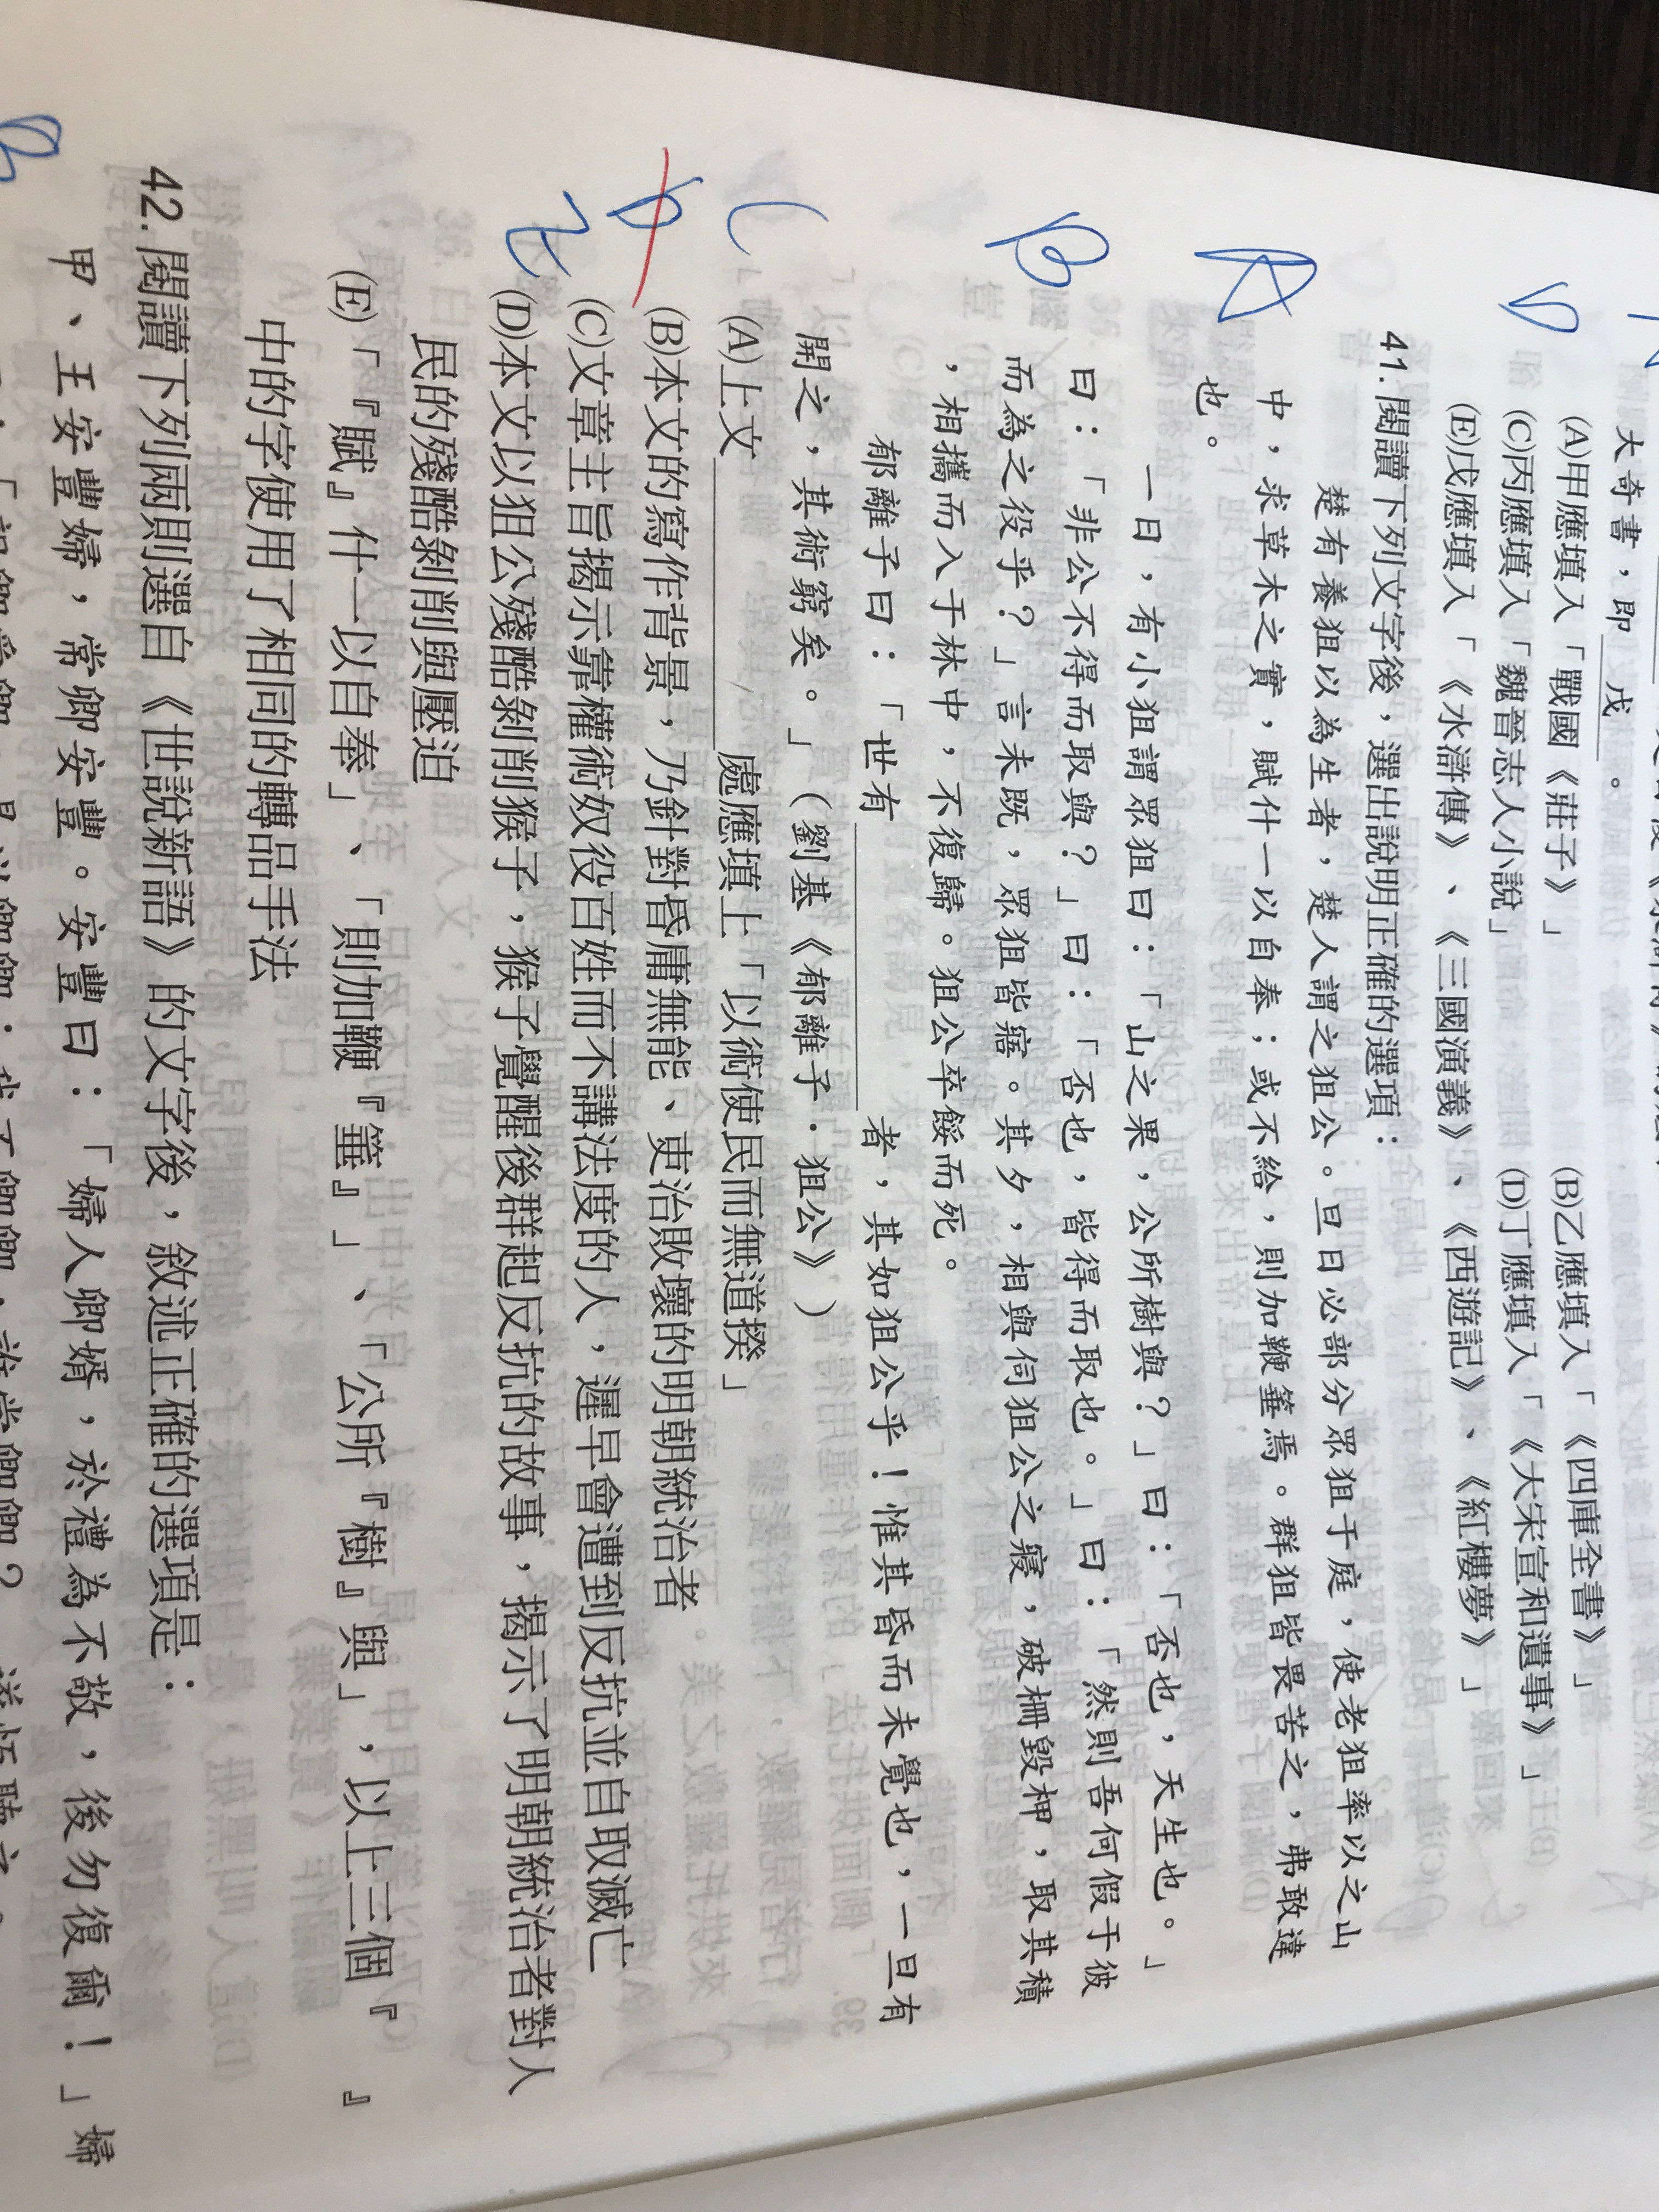 大奇書，即 戊 。
(A)甲應填入「戰國《莊子》」 (B)乙應填入「《四庫全書》」
(C)丙應填入「魏晉志人小說」 (D)丁應填入「《大宋宣和遺事》」
(E)戊應填入「《水滸傳》、《三國演義》、《西遊記》、《紅樓夢》」
41.閱讀下列文字後，選出說明正確的選項：
楚有養狙以為生者，楚人謂之狙公。旦日必部分眾狙于庭，使老狙率以之山
中，求草木之實，賦什一以自奉；或不給，則加鞭箠焉。群狙皆畏苦之，弗敢違
也。
一日，有小狙謂眾狙曰：「山之果，公所樹與？」曰：「否也，天生也。」
曰：「非公不得而取與？」曰：「否也，皆得而取也。」曰：「然則吾何假于彼
而為之役乎？」言未既，眾狙皆寤。其夕，相與伺狙公之寢，破柵毀柙，取其積
，相攜而入于林中，不復歸。狙公卒餒而死。
郁離子曰：「世有 者，其如狙公乎！惟其昏而未覺也，一旦有
開之，其術窮矣。」（劉基《郁離子．狙公》）
(A)上文 處應填上「以術使民而無道揆」
(B)本文的寫作背景，乃針對昏庸無能、吏治敗壞的明朝統治者
(C)文章主旨揭示靠權術奴役百姓而不講法度的人，遲早會遭到反抗並自取滅亡
(D)本文以狙公殘酷剝削猴子，猴子覺醒後群起反抗的故事，揭示了明朝統治者對人
民的殘酷剝削與壓迫
(E)「『賦』什一以自奉」、「則加鞭『箠』」、「公所『樹』與」，以上三個『 』
中的字使用了相同的轉品手法
42.閱讀下列兩則選自《世說新語》的文字後，敘述正確的選項是：
甲、王安豐婦，常卿安豐。安豐曰：「婦人卿婿，於禮為不敬，後勿復爾！」婦
A
B
C